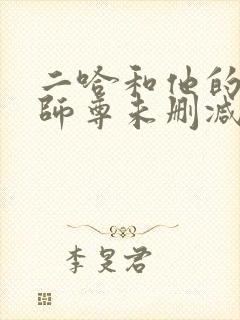 二哈和他的
師尊未删减
李旻君